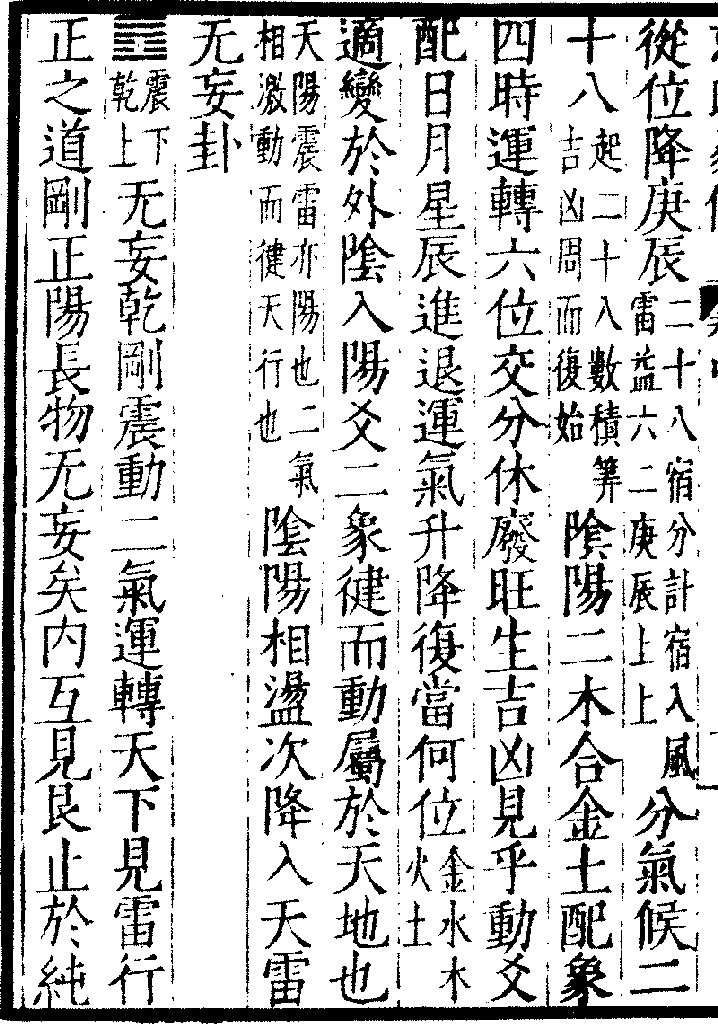 從位降庚辰二十八宿分計宿入風雷益六二庚辰上上分氣候二
十八起二十八數積筭吉凶周而復始陰陽二木合金土配象
四時運轉六位交分休廢旺生吉凶見乎動爻
配日月星辰進退運氣升降復當何位金水木火土
適變於外陰入陽爻二象徤而動屬於天地也
天陽震雷亦陽也二氣相激動而徤天行也陰陽相盪次降入天雷
无妄卦
䷘震下乾上无妄乾剛震動二氣運轉天下見雷行
正之道剛正陽長物无妄矣内互見艮止於純